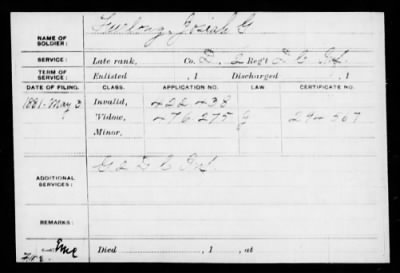 NAME OF SOLDIER: Furlong, Josiah G
SERVICE: Late rank, Co. D, 2 Reg't D C Inf.
TERM OF SERVICE: Enlisted , 1 Discharged , 1
DATE OF FILING. CLASS. APPLICATION NO. LAW CERTIFICATE NO.
1881-May 3 Invalid, 422 438
Widow, 476 275 294 507
Minor,
ADDITIONAL SERVICES: G 2 D C Inf.
REMARKS:
Died , 1 , at